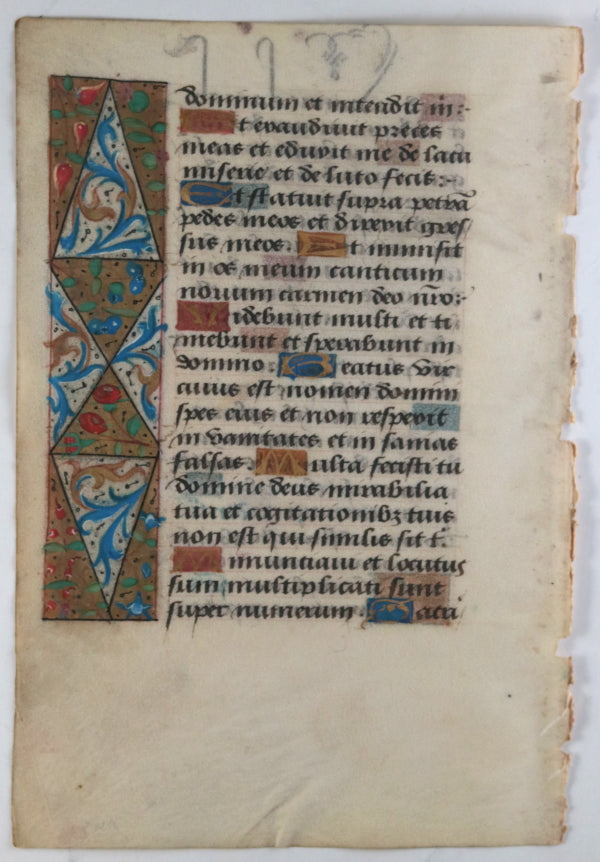 dominum et intendit m̄:-
Et exaudiuit preces
meas et eduxit me de lacu
miserie et de luto fecis:-
Et statuit supra petrā
pedes meos et direxit gres
sus meos. Et inmisit
in os meum canticum
nouum carmen deo nr̄o:-
Videbunt multi et ti
mebunt et sperabunt in
domino. Beatus vir
cuius est nomen domini
spes eius et non respexit
in vanitates et in sanias
falsas. Multa fecisti tu
domine deus mirabilia
tua et cogitationibꝫ tuis
non est qui similis sit t̄.
Annunciaui et locutus
sum multiplicati sunt
super numerum. Sacri